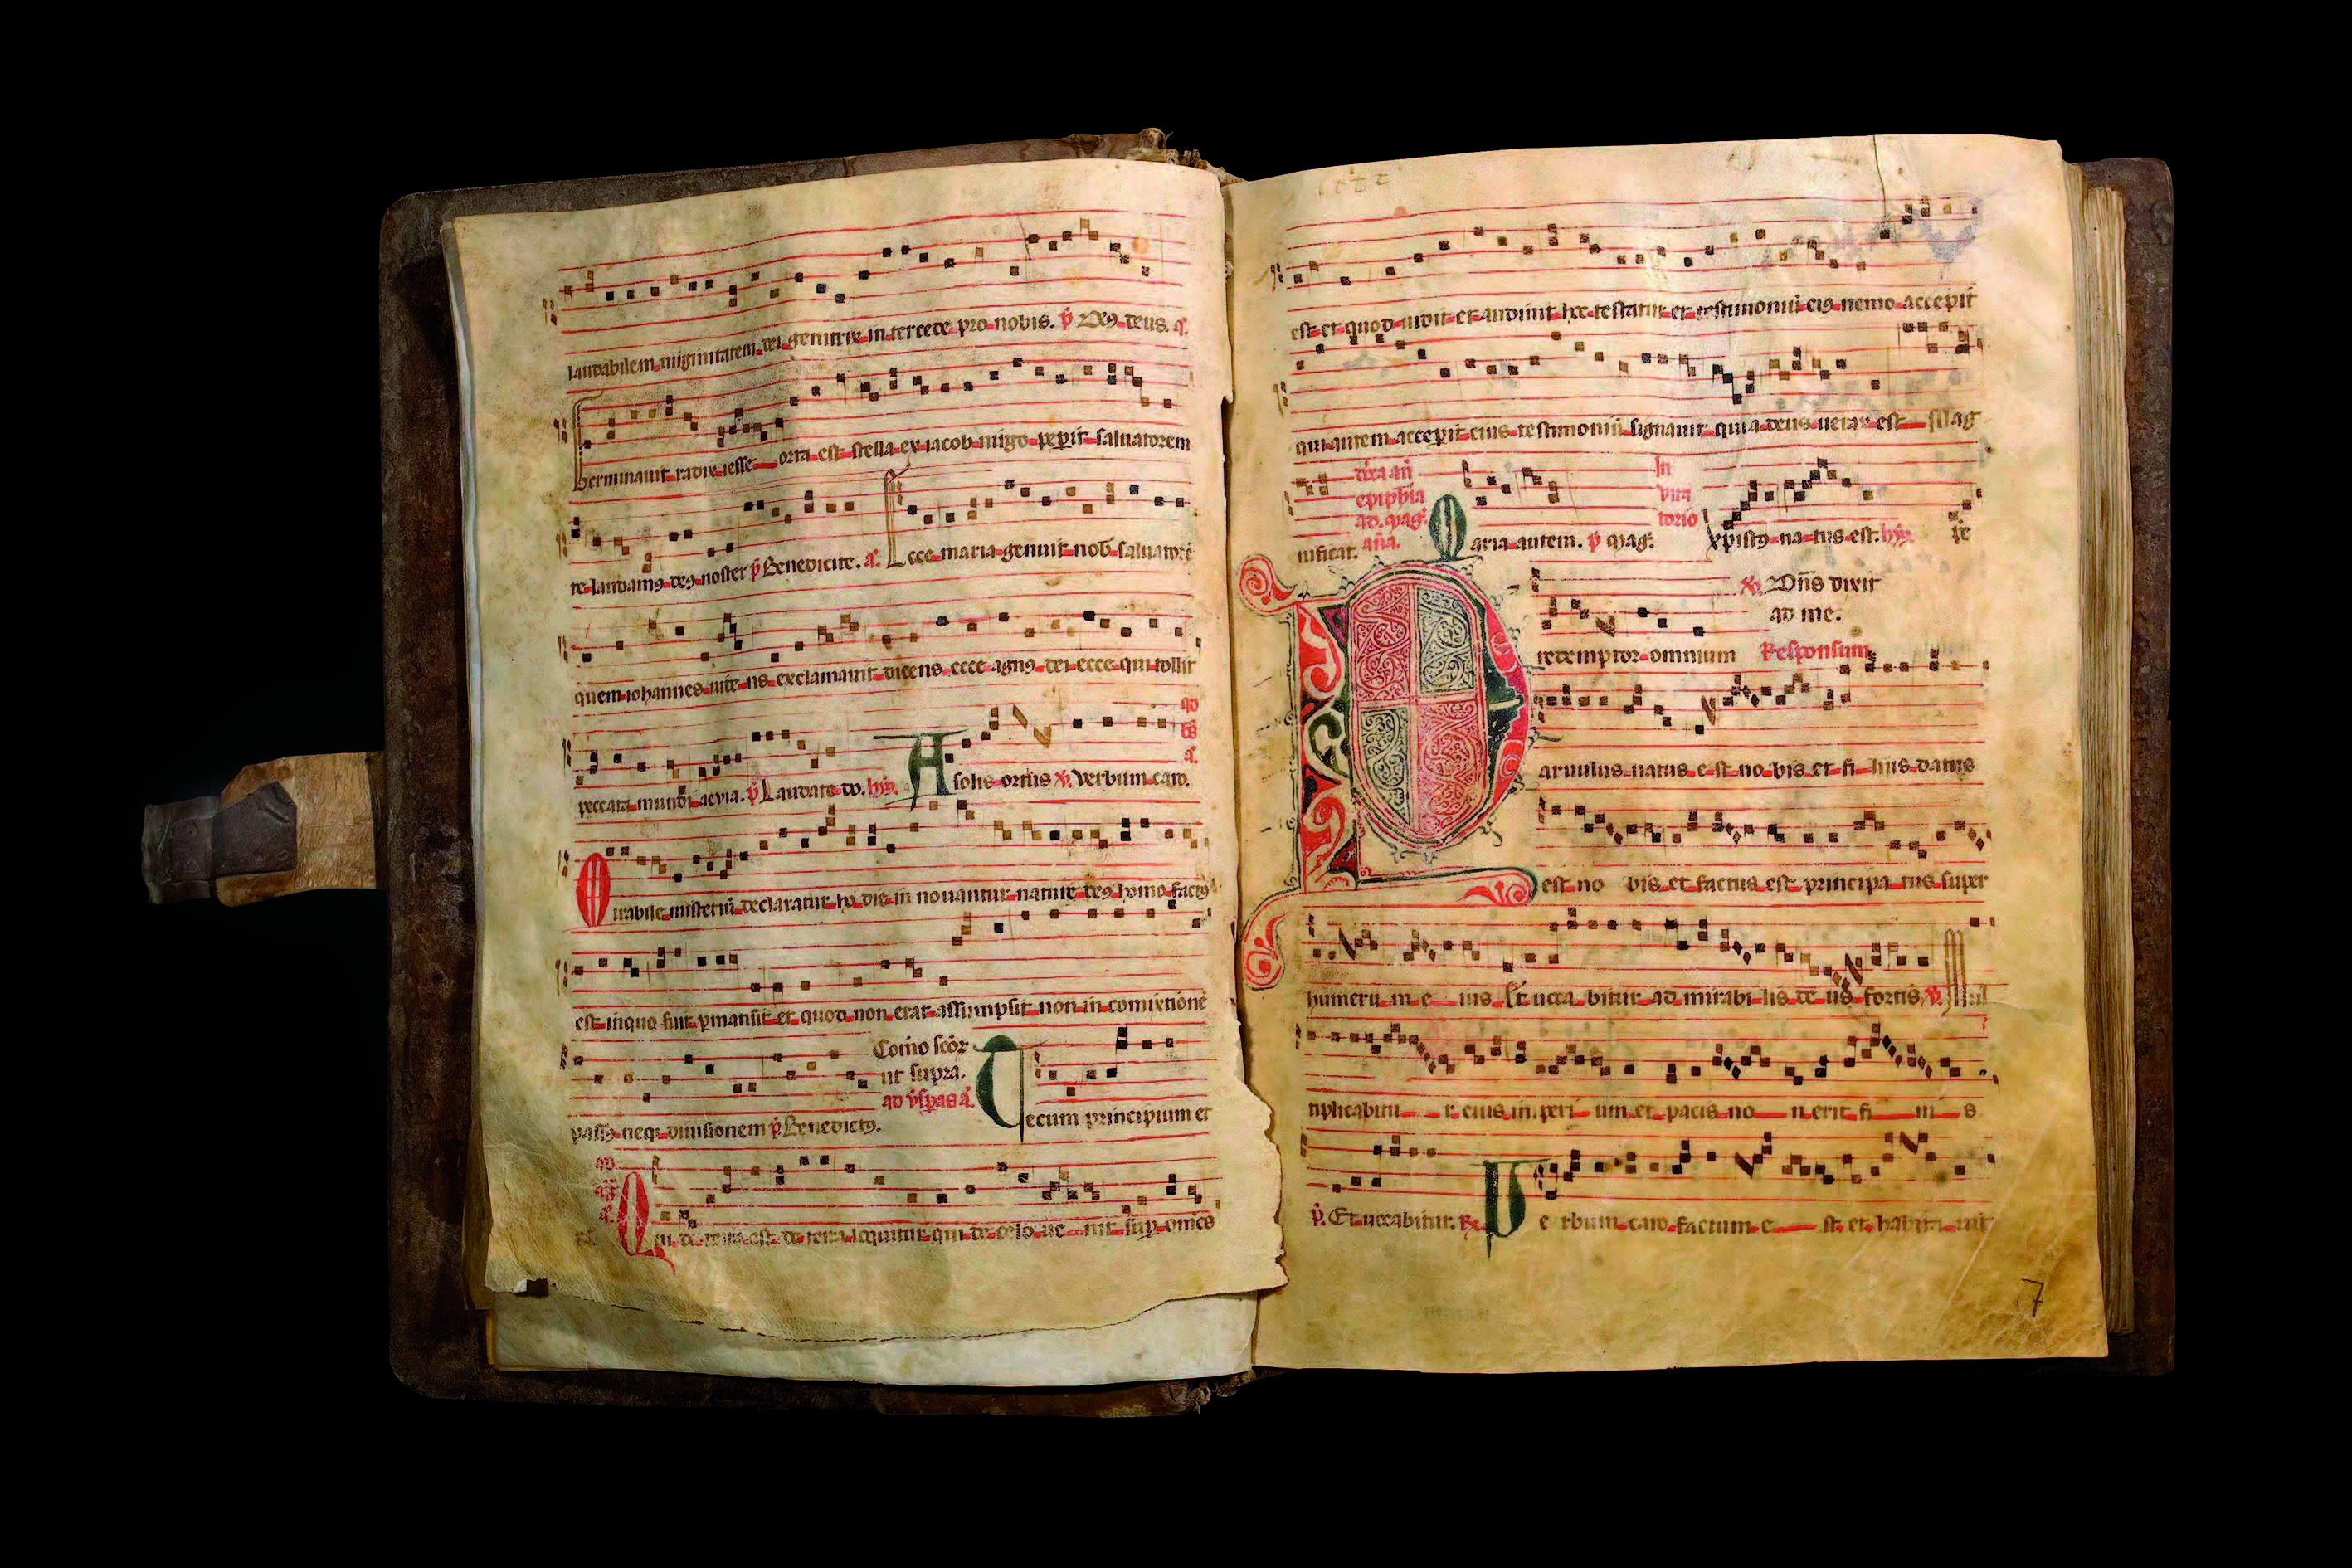 laudabilem uirginitatem dei genitrix intercede pro nobis. p̄ De9 deus. a͂.
Germinauit radix iesse orta est stella ex iacob uirgo peperit saluatorem
te laudam9 de9 noster p̄ Benedicite. a͂. Ecce maria genuit nob̄ saluatorē
quem iohannes uidens exclamauit dicens ecce agn9 dei ecce qui tollit
ad
peccata mundi aeuia. p̄ Laudate do. hȳ. A solis ortus ℣. Verbum caro.
Mirabile misteriū declaratur hodie innouantur nature de9 homo fact9
est in quo fuit pmansit et quod non erat assumpsit non in comixtionē
Com̄o scōr
ut supra.
ad ūspas a͂.
pass9 neq3 diuisionem p̄ Benedict9. Tecum principium et
ad
Qui de terra est de terra loquitur qui de celo uenit sup omēs
est et quod uidit et audiuit hoc testatur et testimoniū ei9 nemo accepit
qui autem accepit eius testimoniū signauit quia deus uerax est Mag
nificat. añā. Maria autem. p̄ mag̃. In
uita
torio
xpist9 natus est. hȳ.
epiphīa
ad. mag̃.
℣. Dn̄s dixit
ad me.
redemptor omnium Responsum
Paruulus natus est nobis et filius datus
est nobis et factus est principatus super
humerū meius Et uocabitur ad mirabilis deus fortis, ℣. Mul
tiplicabitur eius inperium et pacis non erit finis
p̄. Et uocabitur. ℟. Verbum caro factum est et habitauit
7